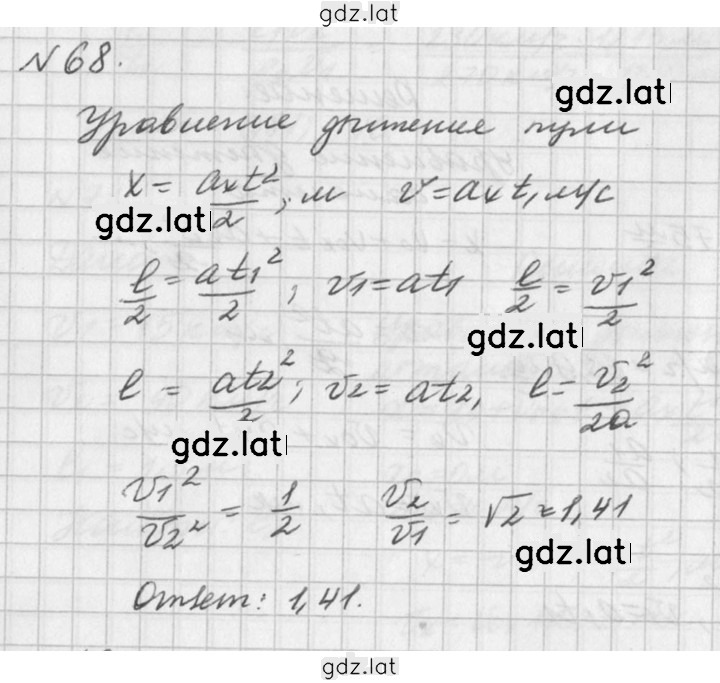 gdz.lat
№68.
gdz.lat
Уравнение движение пули
x = aₓt²/2, м v = aₓt, м/с
gdz.lat
l/2 = at₁²/2, v₁ = at₁ l/2 = v₁²/2
gdz.lat
l = at₂²/2, v₂ = at₂, l = v₂²/2a
gdz.lat
v₁²/v₂² = 1/2 v₂/v₁ = √2 ≈ 1,41
gdz.lat
Ответ: 1,41.
gdz.lat